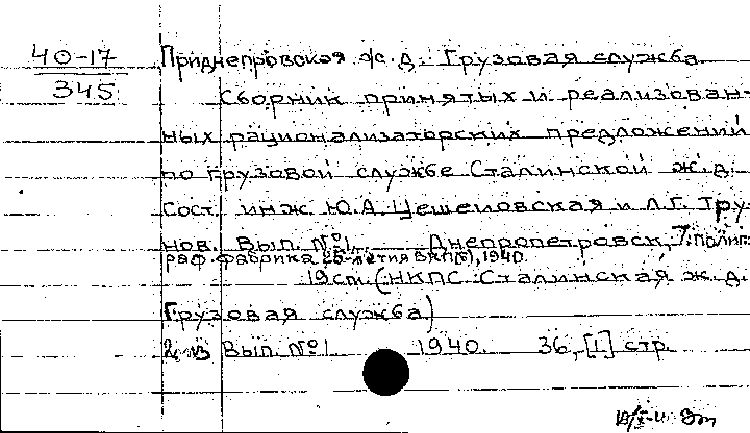 40-17
345
Приднепровская ж. д. Грузовая служба.
Сборник принятых и реализован-
ных рационализаторских предложений
по грузовой службе Сталинской ж. д.
Сост. инж. Ю.А. Цешеловская и Л.Г. Тру-
нов. Вып. №1. Днепропетровск, Полиг-
раф. фабрика 25-летия ВКП(б), 1940.
19 см. (НКПС Сталинская ж. д.
Грузовая служба)
Вып. №1. 1940. 36, [1] стр.